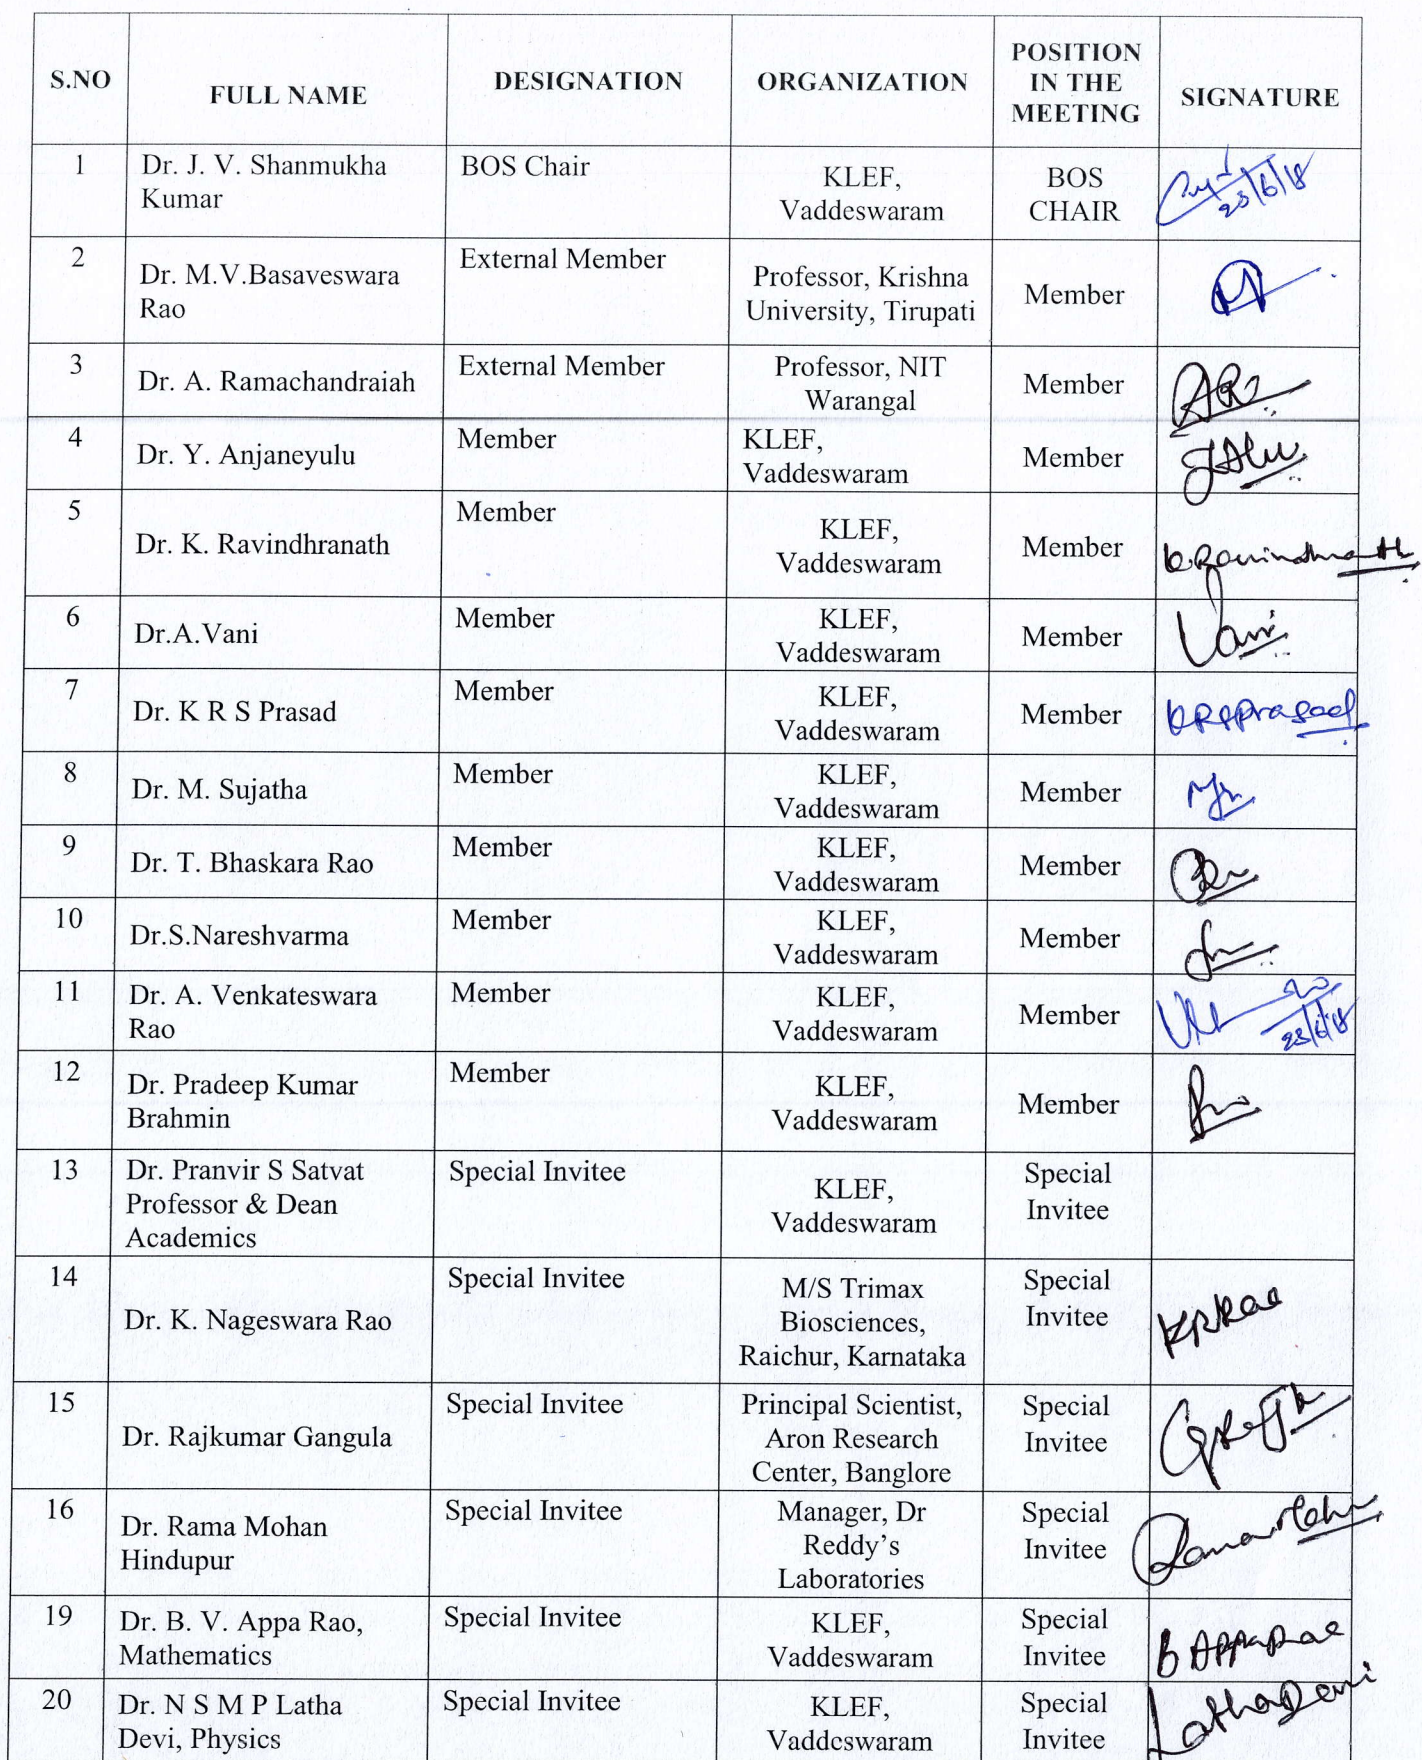 S.NO
FULL NAME
DESIGNATION
ORGANIZATION
POSITION
IN THE
MEETING
SIGNATURE
1
Dr. J. V. Shanmukha
Kumar
BOS Chair
KLEF,
Vaddeswaram
BOS
CHAIR
28/6/18
2
Dr. M.V.Basaveswara
Rao
External Member
Professor, Krishna
University, Tirupati
Member
3
Dr. A. Ramachandraiah
External Member
Professor, NIT
Warangal
Member
4
Dr. Y. Anjaneyulu
Member
KLEF,
Vaddeswaram
Member
5
Dr. K. Ravindhranath
Member
KLEF,
Vaddeswaram
Member
K.Ravindhranath
6
Dr.A.Vani
Member
KLEF,
Vaddeswaram
Member
Vani
7
Dr. K R S Prasad
Member
KLEF,
Vaddeswaram
Member
KRSPrasad
8
Dr. M. Sujatha
Member
KLEF,
Vaddeswaram
Member
9
Dr. T. Bhaskara Rao
Member
KLEF,
Vaddeswaram
Member
10
Dr.S.Nareshvarma
Member
KLEF,
Vaddeswaram
Member
11
Dr. A. Venkateswara
Rao
Member
KLEF,
Vaddeswaram
Member
28/6/18
12
Dr. Pradeep Kumar
Brahmin
Member
KLEF,
Vaddeswaram
Member
13
Dr. Pranvir S Satvat
Professor & Dean
Academics
Special Invitee
KLEF,
Vaddeswaram
Special
Invitee
14
Dr. K. Nageswara Rao
Special Invitee
M/S Trimax
Biosciences,
Raichur, Karnataka
Special
Invitee
15
Dr. Rajkumar Gangula
Special Invitee
Principal Scientist,
Aron Research
Center, Banglore
Special
Invitee
16
Dr. Rama Mohan
Hindupur
Special Invitee
Manager, Dr
Reddy's
Laboratories
Special
Invitee
19
Dr. B. V. Appa Rao,
Mathematics
Special Invitee
KLEF,
Vaddeswaram
Special
Invitee
B APPARao
20
Dr. N S M P Latha
Devi, Physics
Special Invitee
KLEF,
Vaddeswaram
Special
Invitee
LathaDevi